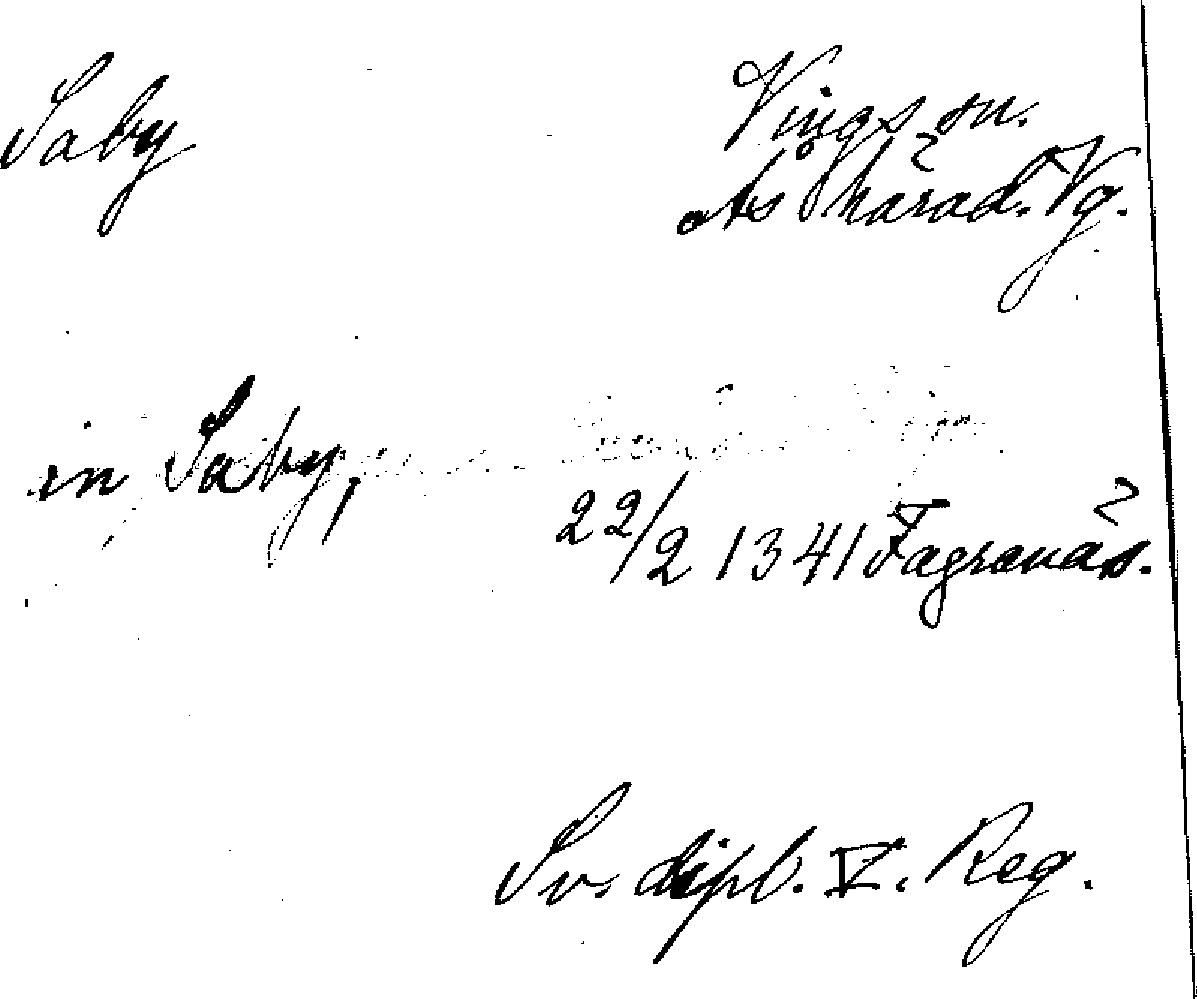 Saby
Vings sn.
Ås härad. Vg.
in Saby,
22/2 1341 Fagranäs.
Sv. dipl. V. Reg.